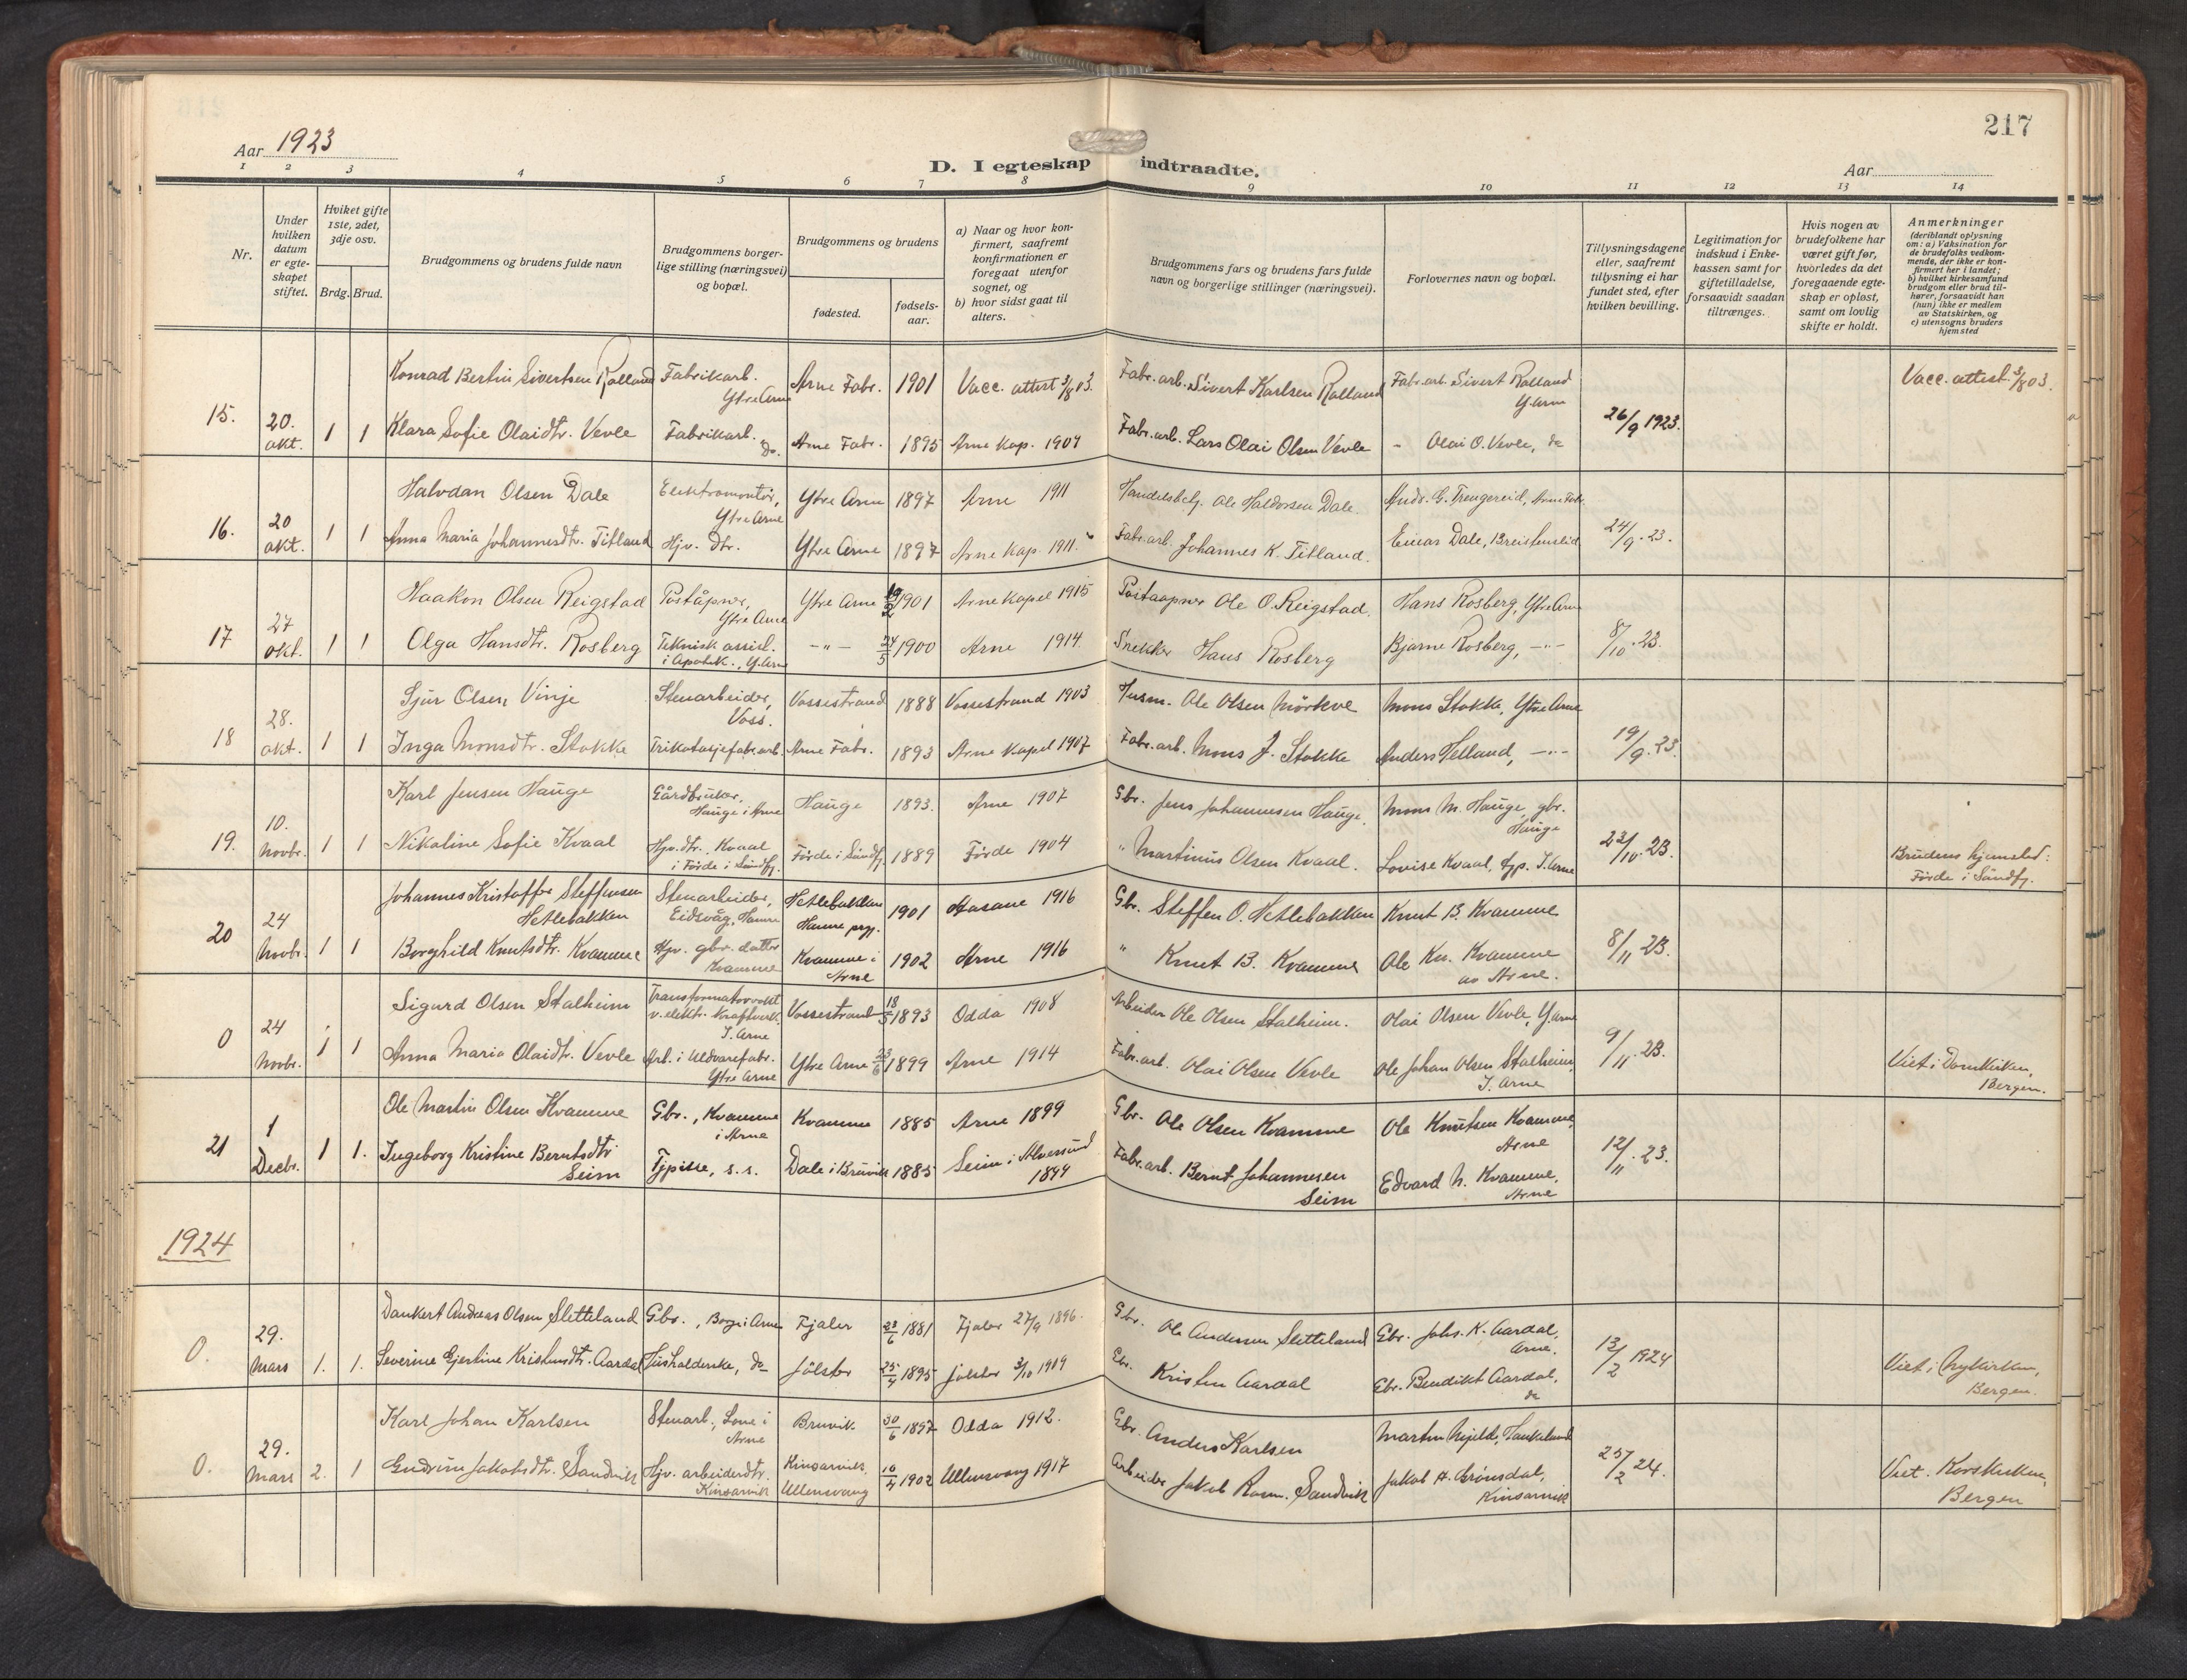 217
Aar 1923
D. I egteskap indtraadte.
Aar
1 2 3 4 5 6 7 8 9 10 11 12 13 14
Nr.
Under hvilken datum er egteskapet stiftet.
Hviket gifte 1ste, 2det, 3dje osv.
Brdg. Brud.
Brudgommens og brudens fulde navn
Brudgommens borgerlige stilling (næringsvei) og bopæl.
Brudgommens og brudens
fødested.
fødselsaar.
a) Naar og hvor konfirmert, saafremt konfirmationen er foregaat utenfor sognet, og
b) hvor sidst gaat til alters.
Brudgommens fars og brudens fars fulde navn og borgerlige stillinger (næringsvei).
Forlovernes navn og bopæl.
Tillysningsdagene eller, saafremt tillysning ei har fundet sted, efter hvilken bevilling.
Legitimation for indskud i Enkekassen samt for giftetilladelse, forsaavidt saadan tiltrænges.
Hvis nogen av brudefolkene har været gift før, hvorledes da det foregaaende egteskap er opløst, samt om lovlig skifte er holdt.
Anmerkninger
(deriblandt oplysning om: a) Vaksination for de brudefolks vedkommende, der ikke er konfirmert her i landet; b) hvilket kirkesamfund brudgom eller brud tilhører, forsaavidt han (hun) ikke er medlem av Statskirken, og c) utensogns bruders hjemsted
Konrad Bertin Sivertsen Rolland Fabrikarb. Ytre Arne Arne Fabr. 1901 Vacc. attest 3/8 03. Fabr. arb. Sivert Karlsen Rolland Fabr. arb. Sivert Rolland Y. Arne Vacc. attest. 3/8 03.
15. 20. okt. 1 1 Klara Sofie Olaidtr. Vevle Fabrikarb. do. Arne Fabr. 1895 Arne Kap. 1909 Fabr. arb. Lars Olai Olsen Vevle - Olai O. Vevle, do 26/9 1923.
Halvdan Olsen Dale Elektromontør, Ytre Arne Ytre Arne 1897 Arne 1911 Handelsbetj. Ole Haldorsen Dale. Andr. G. Trengereid, Arne Fabr.
16. 20 okt. 1 1 Anna Maria Johannesdtr. Titland Hjv. dtr. Ytre Arne 1897 Arne Kap. 1911. Fabr. arb. Johannes K. Titland. Einar Dale, Breisteinslid 24/9. 23.
Haakon Olsen Reigstad Poståpner, Ytre Arne Ytre Arne 1901 Arne Kapel 1915 Postaapner Ole O. Reigstad. Hans Rosberg, Ytre Arne
17 27 okt. 1 1 Olga Hansdtr. Rosberg Teknisk assist. i Apotek., Y. Arne -"- 24/5 1900 Arne 1914. Snekker Hans Rosberg Bjarne Rosberg, -"- 8/10. 23.
Sjur Olsen Vinje Stenarbeider, Voss. Vossestrand 1888 Vossestrand 1903 Husm. Ole Olsen Mörkve Mons Stokke, Ytre Arne
18 28. okt. 1 1 Inga Monsdtr. Stokke Trikotasjefabr. arb. Arne Fabr. 1893 Arne Kapel 1907 Fabr. arb. Mons J. Stokke Anders Helland, -"- 19/9. 23.
Karl Jensen Hauge Gårdbruker, Hauge i Arne Hauge 1893. Arne 1907 Gbr. Jens Johannesen Hauge. Mons M. Hauge, gbr. Hauge
19. 10. Novbr. 1 1 Nikoline Sofie Kvaal Hjv. dtr., Kvaal i Förde i Söndfj. Förde i Söndfj. 1889 Förde 1904 " Martinus Olsen Kvaal. Lovise Kvaal, tjp. I. Arne 23/10. 23. Brudens hjemsted: Förde i Söndfj.
Johannes Kristoffer Steffensen Hetlebakken Stenarbeider, Eidsvåg, Hamre Hetlebakken Hamre prgj. 1901 Aasane 1916 Gbr. Steffen O. Hetlebakken Knut B. Kvamme
20 24 Novbr. 1 1 Borghild Knutsdtr. Kvamme Hjv. gbr. datter Kvamme Kvamme i Arne 1902 Arne 1916 " Knut B. Kvamme Ole Kn. Kvamme av Arne. 8/11 23.
Sigurd Olsen Stalheim Transformatorvakt v. elektr. Kraftverk. I. Arne Vossestrand 18/5 1893 Odda 1908 Arbeider Ole Olsen Stalheim. Olai Olsen Vevle, Y. Arne
0 24 Novbr. 1 1 Anna Maria Olaidtr. Vevle Arb. i Uldvarefabr. Ytre Arne Ytre Arne 23/6 1899 Arne 1914 Fabr. arb. Olai Olsen Vevle Ole Johan Olsen Stalheim, I. Arne 9/11. 23. Viet i Domkirken, Bergen.
Ole Martin Olsen Kvamme Gbr., Kvamme i Arne Kvamme 1885 Arne 1899 Gbr. Ole Olsen Kvamme Ole Knutsen Kvamme, Arne
21 1 Decbr. 1 1. Ingeborg Kristine Berntsdtr Seim Tjpike, s. s. Dale i Bruvik 1885 Seim i Alversund 1899 Fabr. arb. Bernt Johannesen Seim Edvard N. Kvamme, Arne 12/11. 23.
1924
Dankert Andreas Olsen Sletteland Gbr., Borge i Arne Fjaler 23/6 1881 Fjaler 27/9 1896. Gbr. Ole Andersen Sletteland Gbr. Johs. K. Aardal, Arne.
0. 29. Mars 1. 1. Severine Gjertine Kristensdtr. Aardal Husholderske, do Jölster 25/4 1895 Jölster 3/10 1909 Gbr. Kristen Aardal Gbr. Bendikt Aardal, do 13/2 1924 Viet i Nykirken, Bergen.
Karl Johan Karlsen Stenarb., Lone i Arne Bruvik 30/6 1897 Odda 1912. Gbr. Anders Karlsen Martin Mjelde, Haukeland
0. 29. Mars 2. 1 Gudrun Jakobsdtr. Sandvik Hjv. arbeiderdtr. Kinsarvik Kinsarvik, Ullensvang 16/4 1902 Ullensvang 1917 Arbeider Jakob Rasm. Sandvik Jakob A. Grönsdal, Kinsarvik 25/2 24. Viet. Korskirken, Bergen